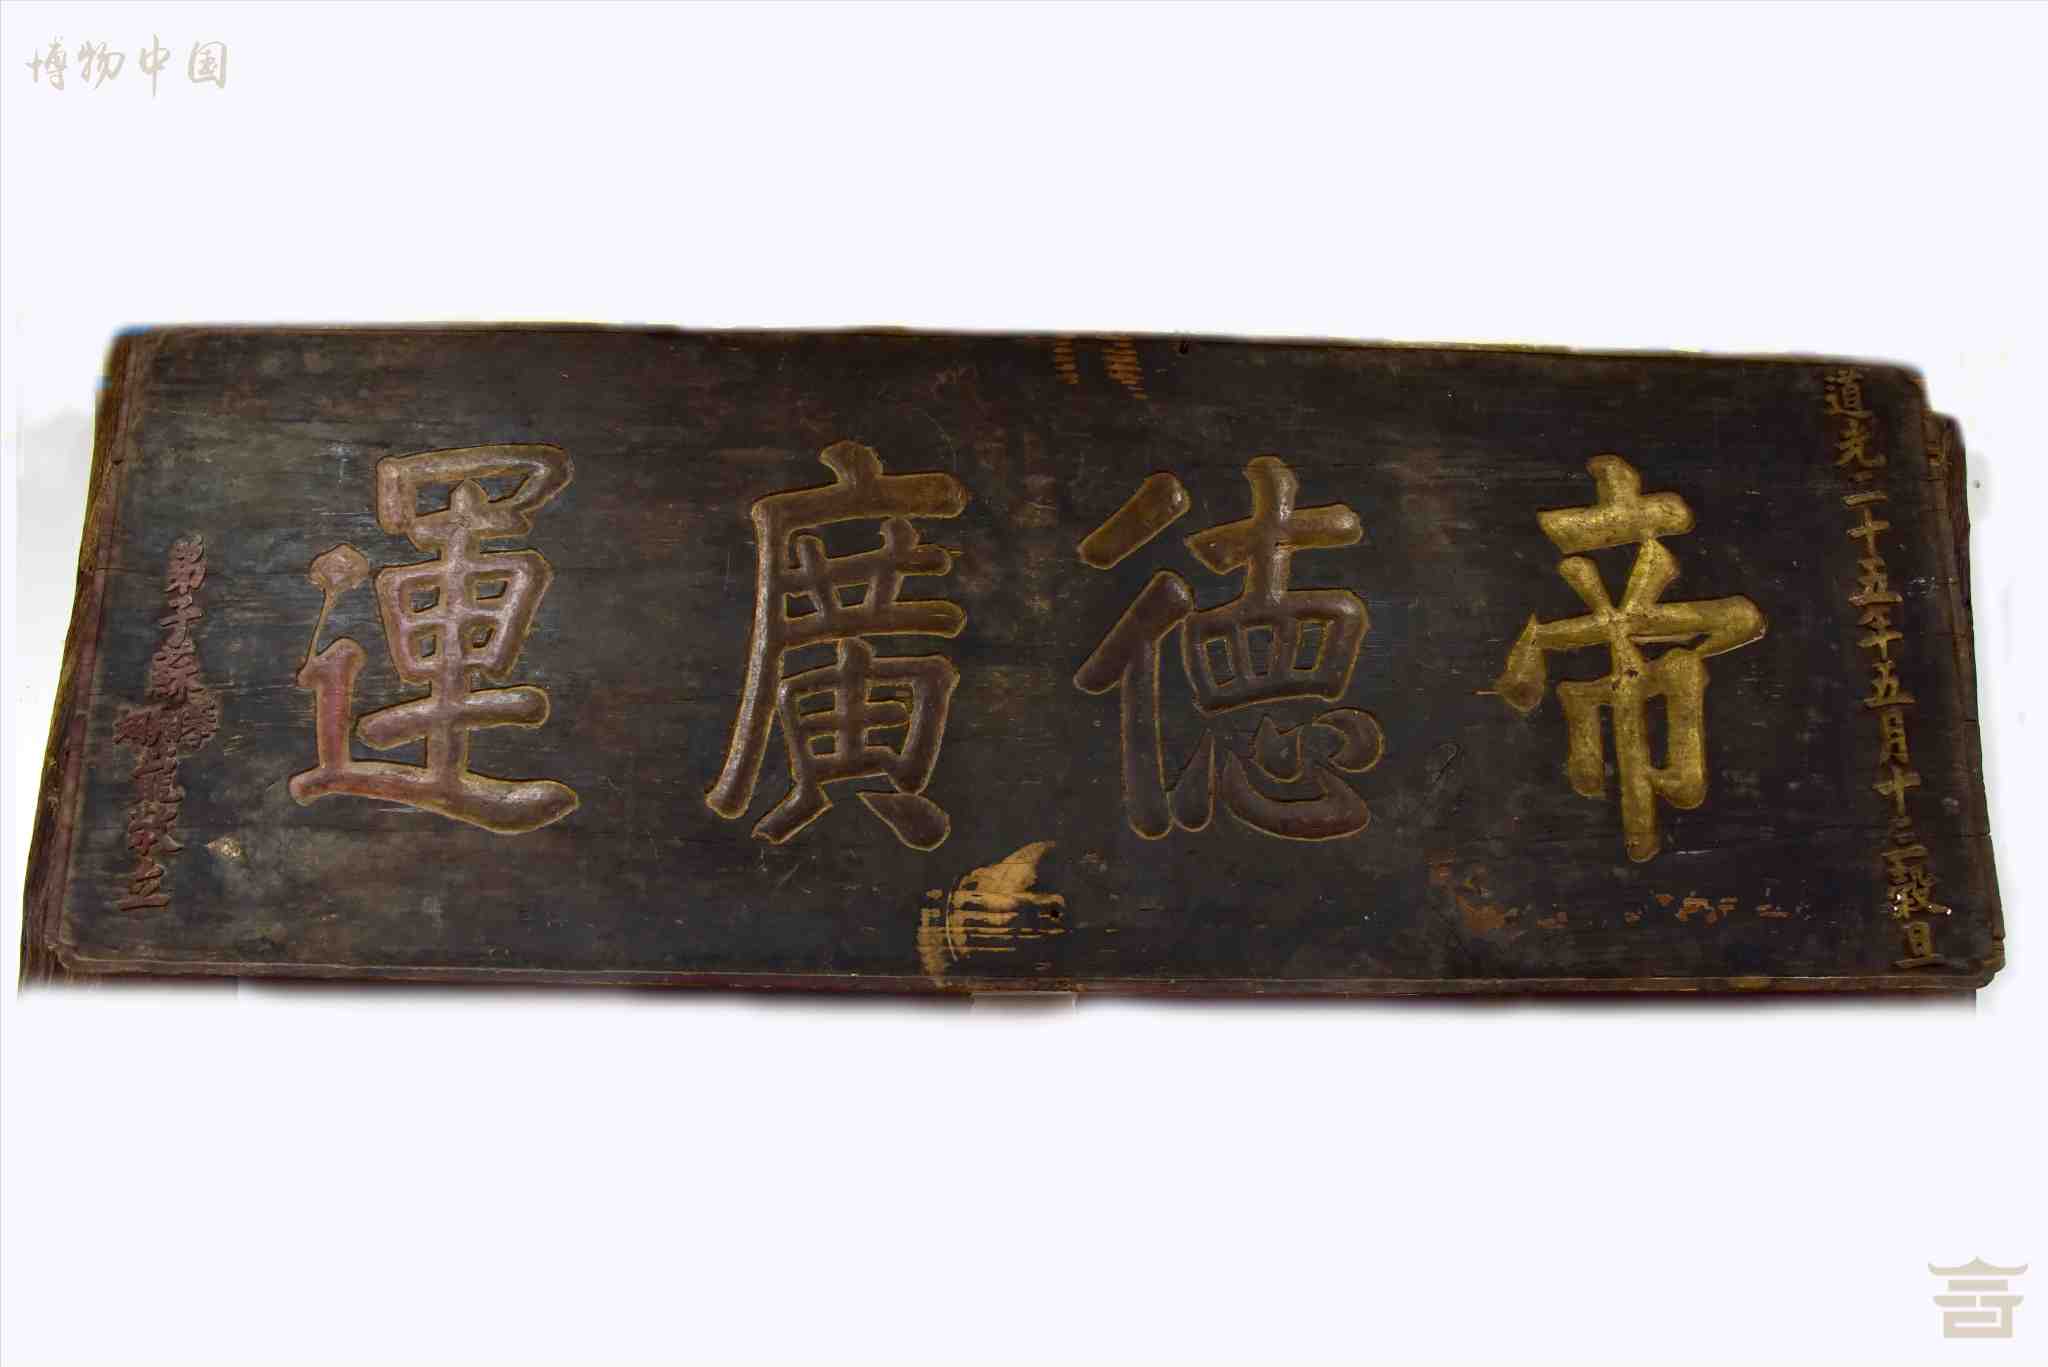 博物中国
道光二十五年五月十三穀旦
帝德廣運
弟子
敬立